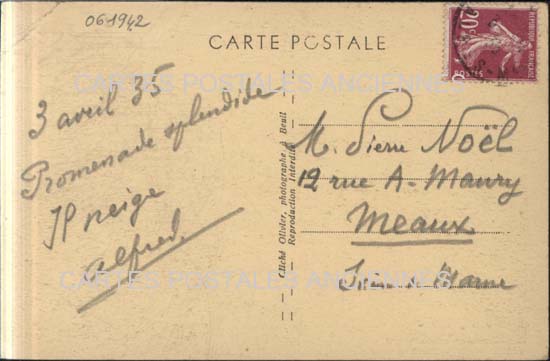 061942
CARTE POSTALE
20c
POSTES
RÉPUBLIQUE FRANÇAISE
CARTES POSTALES ANCIENNES
3 avril 35
Promenade splendide
Il neige
Alfred
Cliché Olivier, photographe à Breuil
Reproduction Interdite
M. Pierre Noël
12 rue A-Maury
MEAUX
Seine et Marne
CARTES POSTALES ANCIENNES